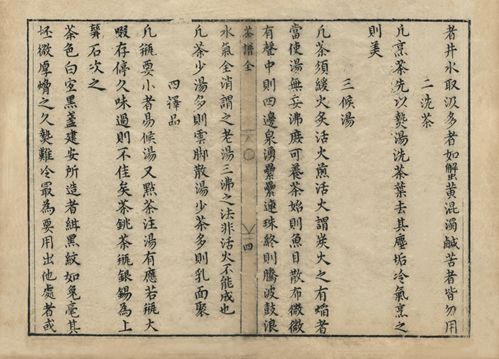 者井水取汲多者如蟹黃混濁鹹苦者皆勿用
二洗茶
凡烹茶先以熱湯洗茶葉去其塵垢冷氣烹之
則美
三候湯
凡茶須緩火炙活火煎活火謂炭火之有焰者
當使湯無妄沸庶可養茶始則魚目散布微微
有聲中則四邊泉湧纍纍連珠終則騰波鼓浪
茶譜全
四
水氣全消謂之老湯三沸之法非活火不能成也
凡茶少湯多則雲脚散湯少茶多則乳面聚
四擇品
凡瓶要小者易候湯又點茶注湯有應若瓶大
啜存停久味過則不佳矣茶銚茶瓶銀錫為上
甆石次之
茶色白宜黑盞建安所造者紺黑紋如兔毫其
坯微厚熁之久熱難冷最為要用出他處者或